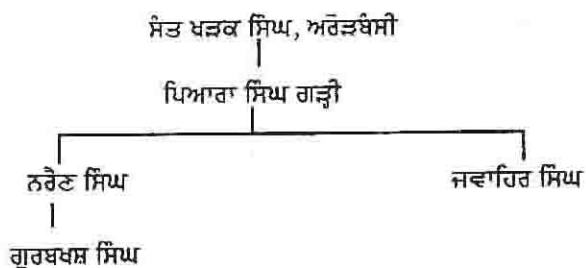 ਸੰਤ ਖੜਕ ਸਿੰਘ, ਅਰੋੜਬੰਸੀ
ਪਿਆਰਾ ਸਿੰਘ ਗੜ੍ਹੀ
ਨਰੈਣ ਸਿੰਘ ਜਵਾਹਿਰ ਸਿੰਘ
ਗੁਰਬਖਸ਼ ਸਿੰਘ